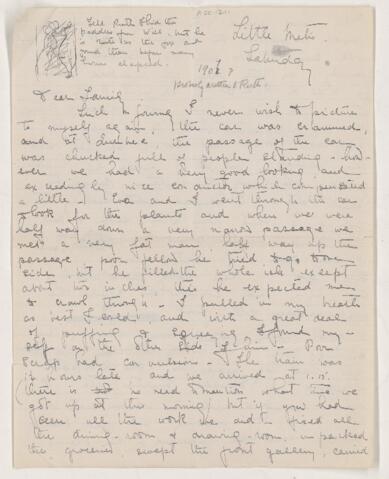 Tell Ruth I hid the
paddles for Will. but he
is to use the
and them before any
Little Metis
Saturday
1902?
Dear Family.
Such a journey I never wish to picture
to myself again, the car was crammed,
and at dinner the passage of the car
was chucked full of people standing - how-
ever we had a very good looking and
exceedingly nice conductor which compensated
a little. Eva and I went through the car
to look for the plants and when we were
half way down a very narrow passage we
met a very fat man, half way up the
passage poor fellow he tried to go to one
side, but he filled the whole isle except
about two inches, this he expected me
to crawl through. I pulled in my breath
as best I could and with a great deal
of puffing & squeezing I found my-
self on the other side of him. Poor
Scrap had convulsions. The train was
12 hours late and we arrived at 1.15.
there is no need to mention what time we
got up this morning, but if you had
seen all the work we did - fixed all
the dining-room & drawing-room, unpacked
the groceries, swept the front gallery, carried